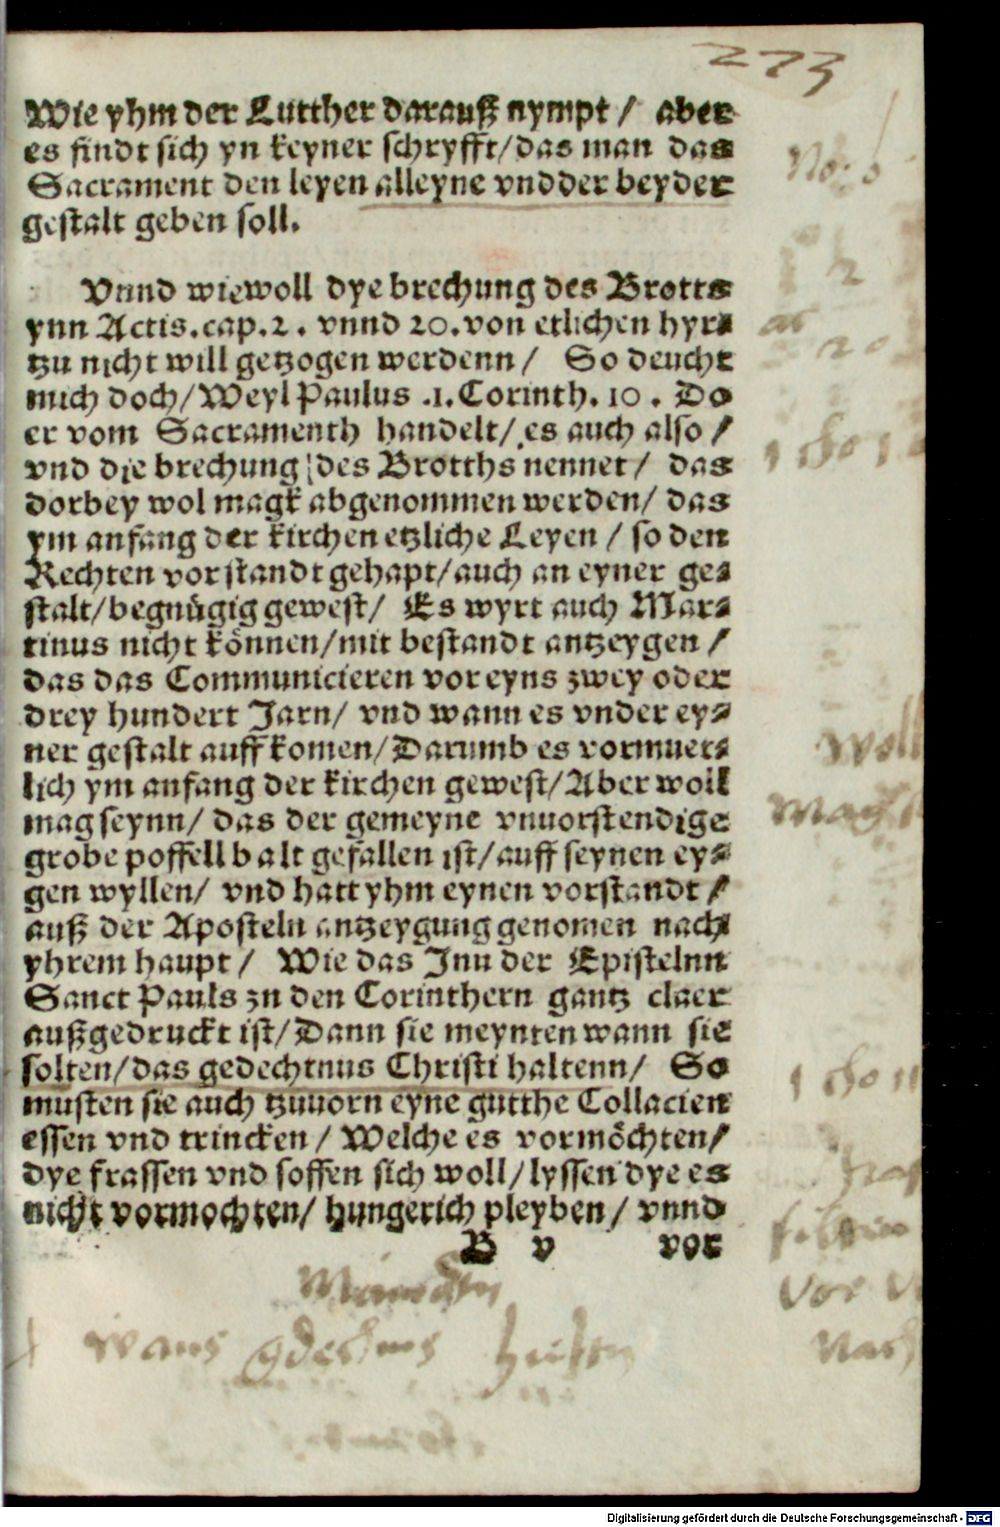 273
Wie yhm der Lutther darauß nympt / aber
es findt sich yn keyner schryfft/das man das
Sacrament den leyen alleyne vndder beyder
gestalt geben soll.
Vnnd wiewoll dye brechung des Brotts
ynn Actis.cap.2. vnnd 20.von etlichen hyr⸗
tzu nicht will getzogen werdenn / So deucht
mich doch/Weyl Paulus .1.Corinth. 10. Do
er vom Sacramenth handelt/es auch also /
vnd die brechung des Brotths nennet / das
dorbey wol magk abgenommen werden/ das
ym anfang der kirchen etzliche Leyen / so den
Rechten vorstandt gehapt/auch an eyner ge⸗
stalt/begnügig gewest/ Es wyrt auch Mar⸗
tinus nicht können/mit bestandt antzeygen /
das das Communicieren vor eyns zwey oder
drey hundert Jarn/ vnd wann es vnder ey⸗
ner gestalt auffkomen/Darumb es vormuet⸗
lich ym anfang der kirchen gewest/Aber woll
mag seynn/ das der gemeyne vnuorstendige
grobe poffell balt gefallen ist/auff seynen ey⸗
gen wyllen/ vnd hatt yhm eynen vorstandt /
auß der Aposteln antzeygung genomen nach
yhrem haupt / Wie das Jnn der Epistelnn
Sanct Pauls zu den Corinthern gantz claer
außgedruckt ist/Dann sie meynten wann sie
solten/das gedechtnus Christi haltenn/ So
musten sie auch tzuuorn eyne gutthe Collacien
essen vnd trincken / Welche es vormöchten/
dye frassen vnd soffen sich woll/lyssen dye es
nicht vormochten/ hungerich pleyben/ vnnd
B v vor
woll
vor
Digitalisierung gefördert durch die Deutsche Forschungsgemeinschaft - DFG